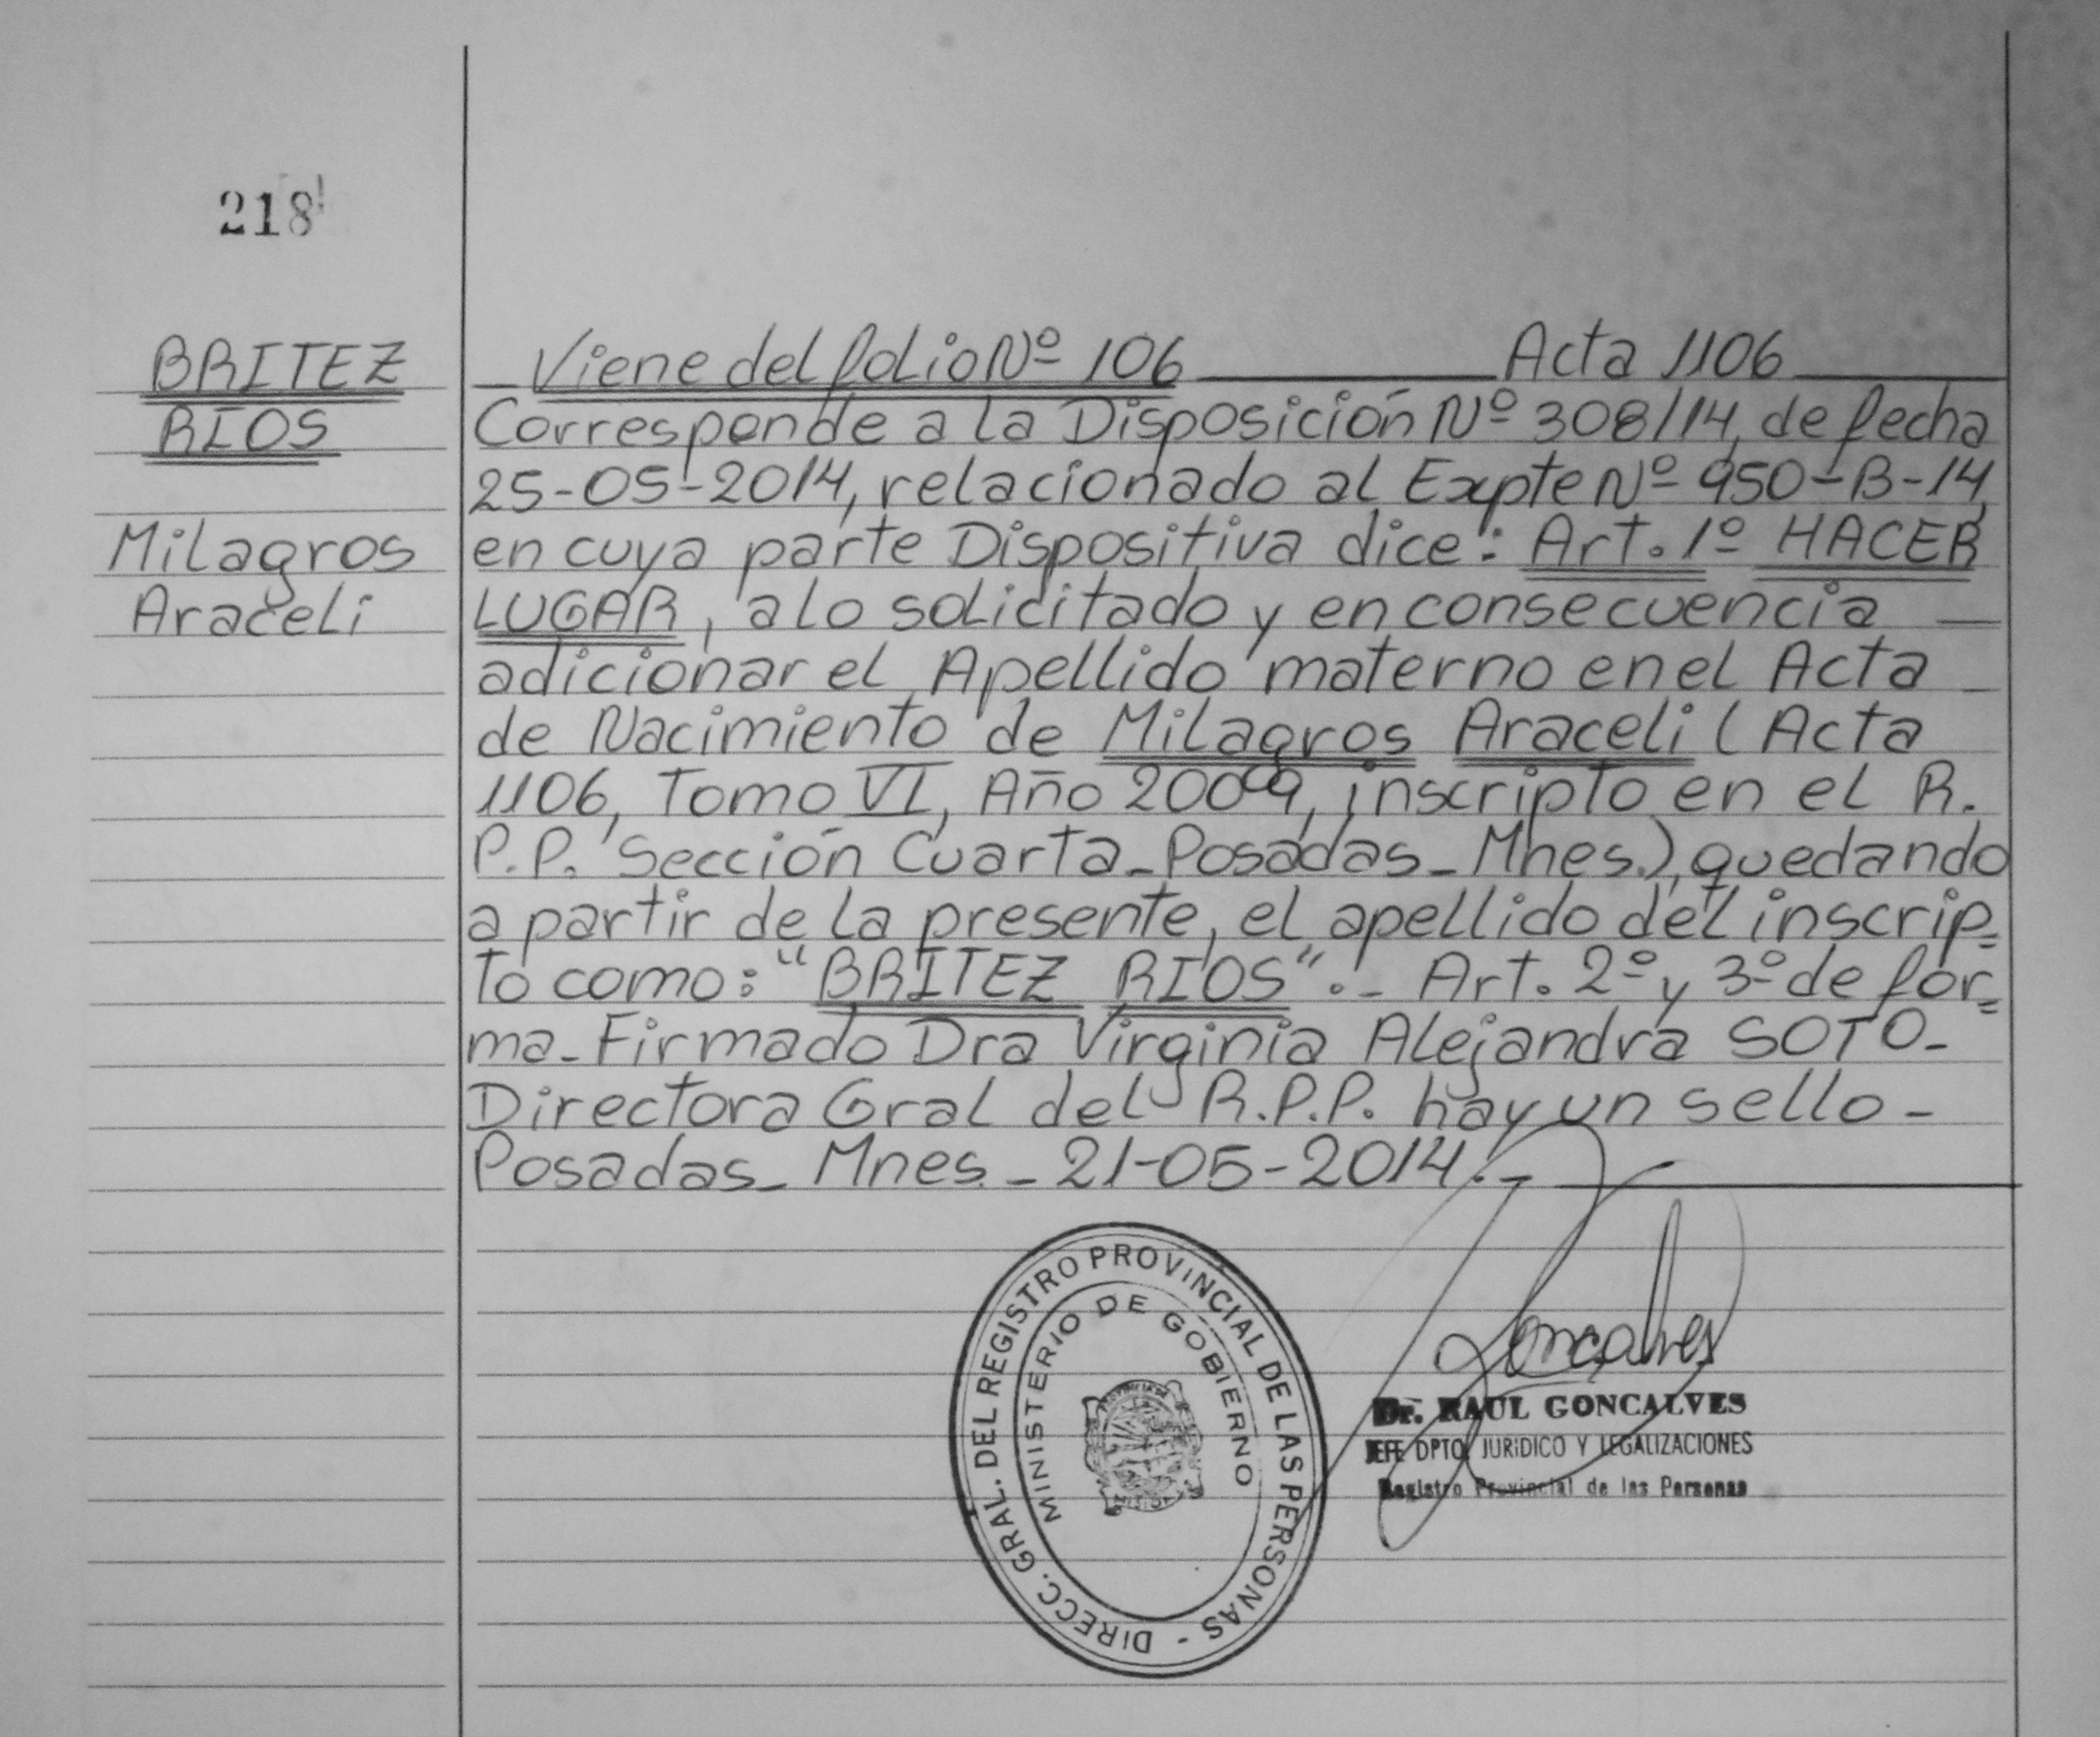 218
BRITEZ
RIOS
Milagros
Araceli
Viene del folio Nº 106 Acta 1106
Corresponde a la Disposición Nº 308/14, de fecha
25-05-2014, relacionado al Expte Nº 950-B-14,
en cuya parte Dispositiva dice: Art. 1º HACER
LUGAR, a lo solicitado y en consecuencia
adicionar el Apellido materno en el Acta
de Nacimiento de Milagros Araceli (Acta
1106, Tomo VI, Año 2009, inscripto en el R.
P.P. Sección Cuarta_Posadas_Mnes.), quedando
a partir de la presente, el apellido del inscrip=
to como: "BRITEZ RIOS".- Art. 2º y 3º de for=
ma_Firmado Dra Virginia Alejandra SOTO_
Directora Gral del R.P.P. hay un sello -
Posadas_Mnes._21-05-2014.-
DIRECC. GRAL. DEL REGISTRO PROVINCIAL DE LAS PERSONAS -
MINISTERIO DE GOBIERNO
Goncalves
Dr. RAUL GONCALVES
JEFE DPTO. JURIDICO Y LEGALIZACIONES
Registro Provincial de las Personas